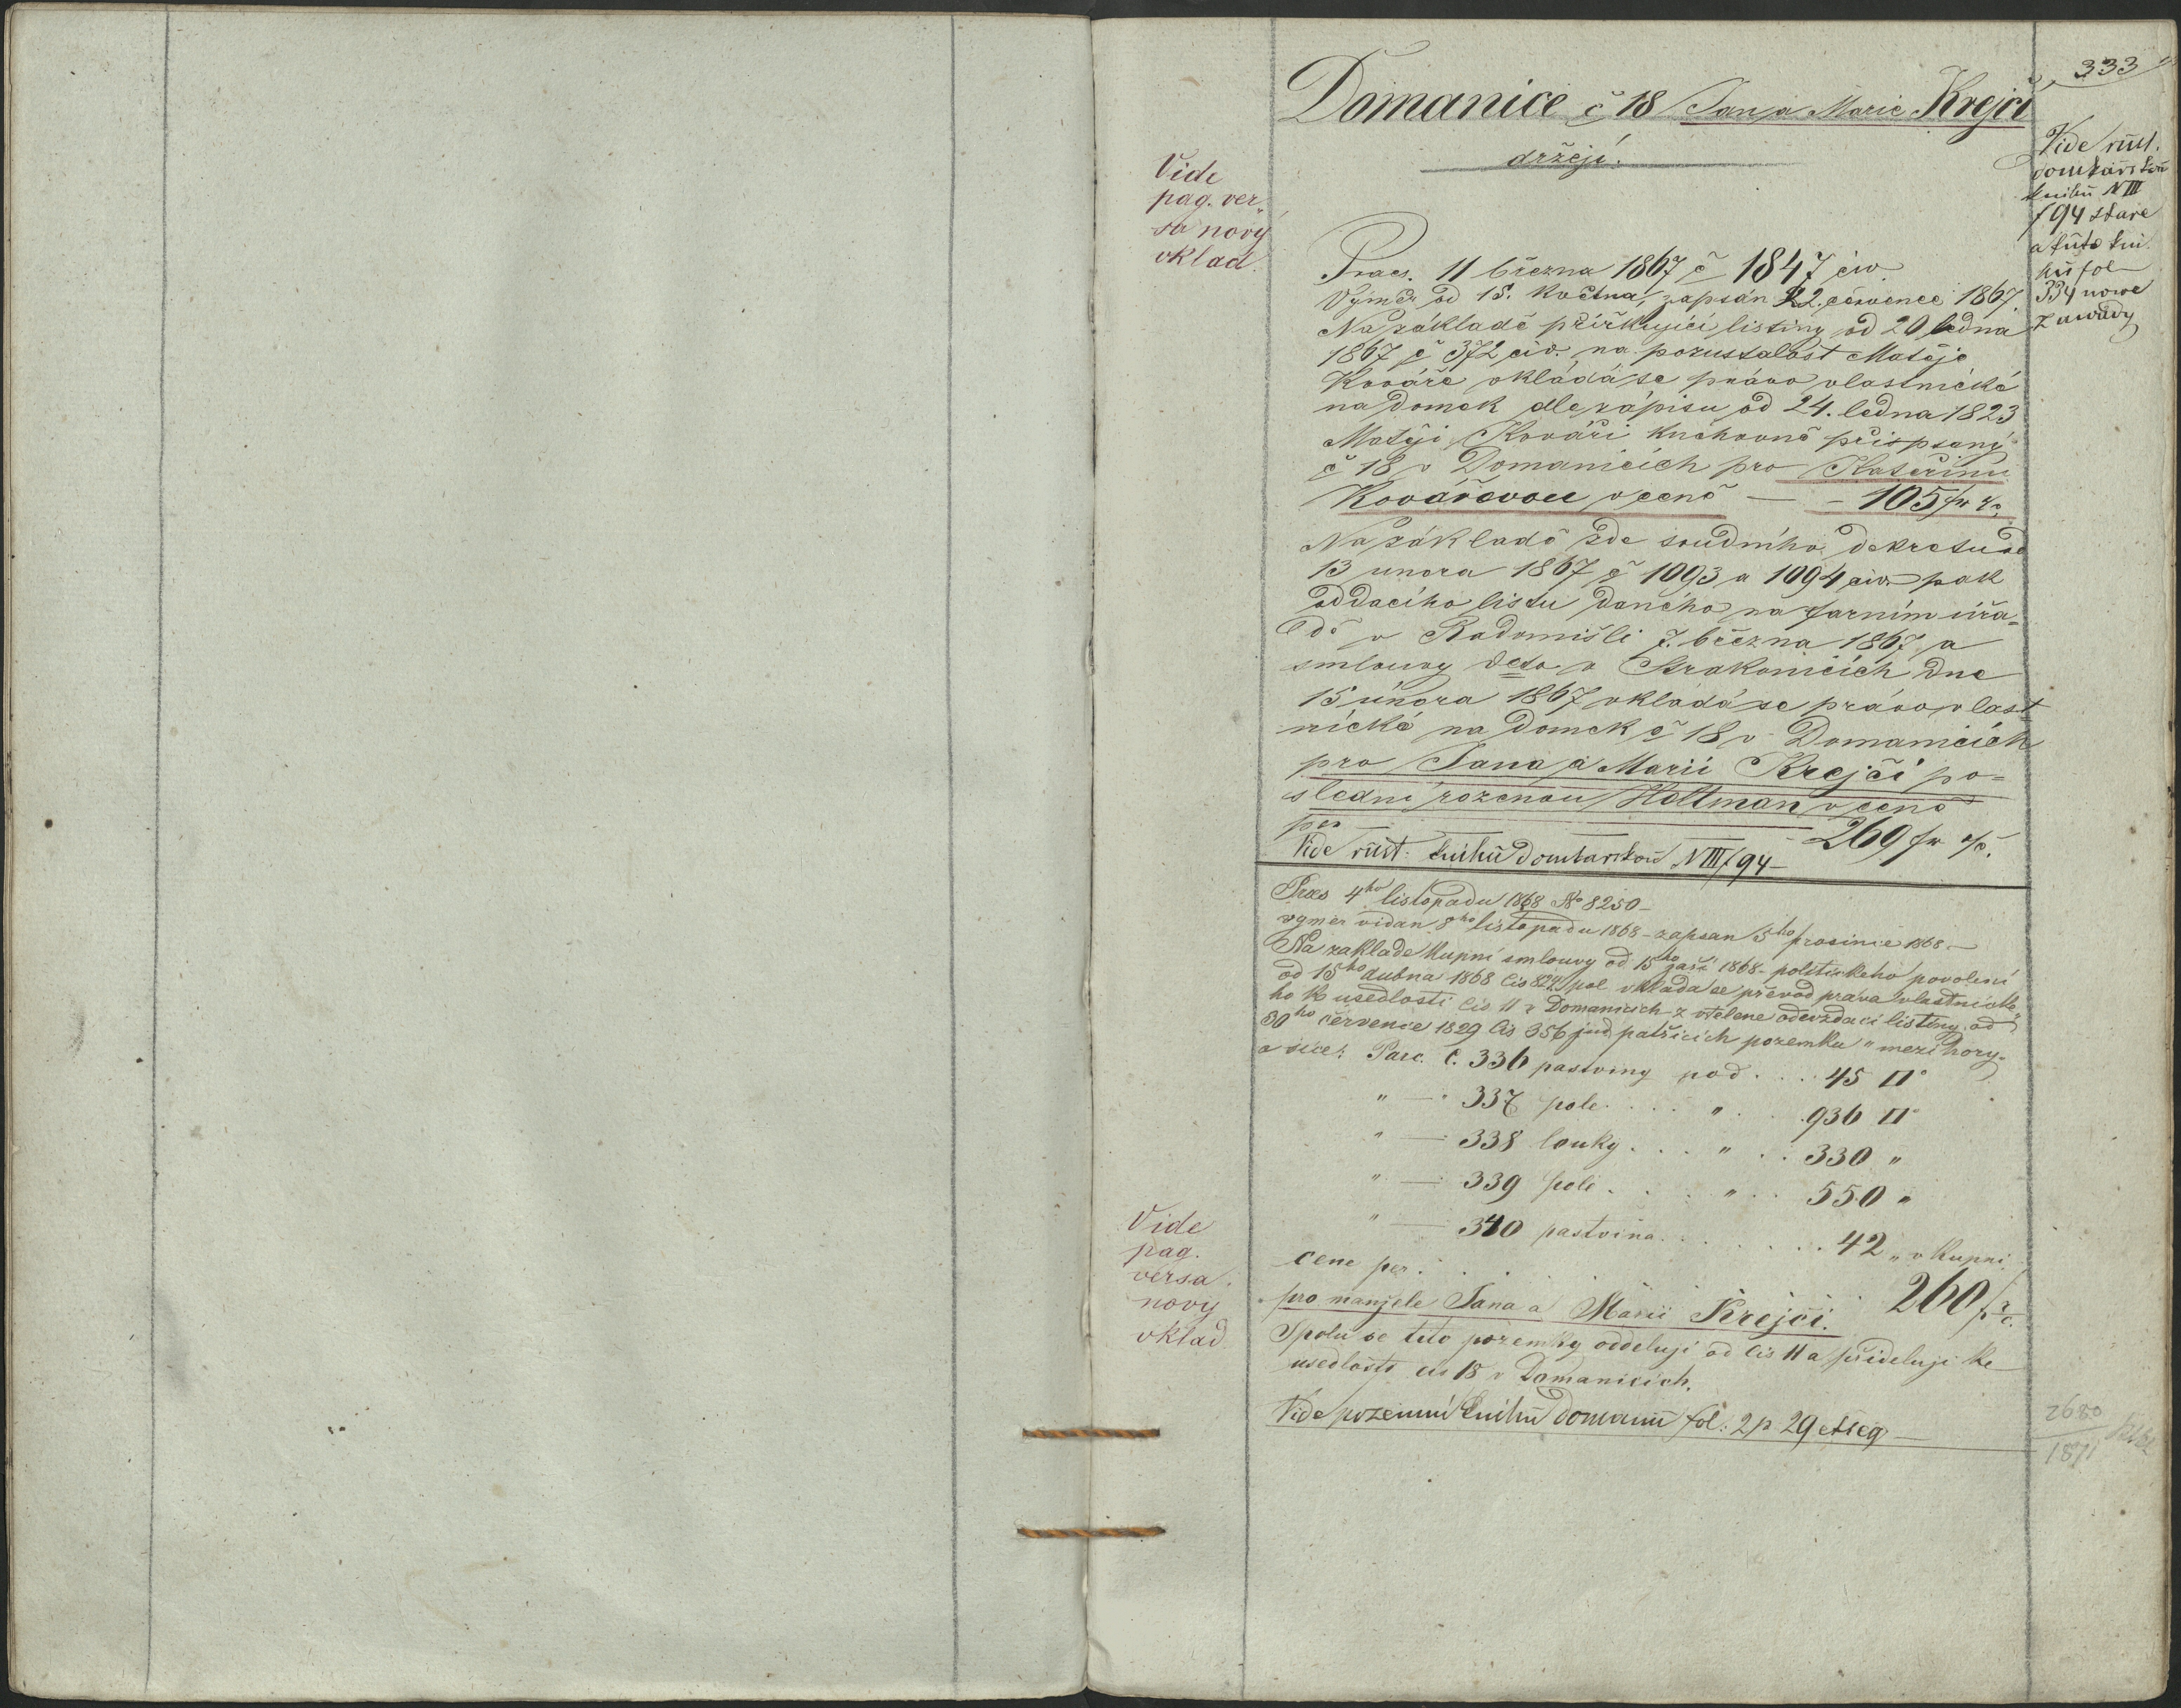 333
Domanice č 18 Jan a Marie Krejci
držeji.
Vide rust.
domkařskou
knihu N III
f 94 stare
a tuto kni
hu fol
334 nowe
zawady
Vide
pag. ver„
sa nový
vklad.
Praes. 11 března 1867 č 1847 civ.
Výměr od 15. května, zapsán 22. července 1867
Na základě přiřkující listiny od 20 ledna
1867 č 372 civ. na pozustalost Matěje
Kováře vkládá se právo vlastnické
na domek dle zápisu od 24. ledna 1823
Matěji Kováři knihovně připsaný
č 18 v Domanicich pro Kateřinu
Kovářovou v ceně — – 105 fr
Na základě zde soudního dekretu od
13 unora 1867 č 1093 a 1094 civ. pak
oddacího listu daného na farním úřa=
dě v Radomišli 7. března 1867 a
smlouvy deto v Strakonicích dne
15 února 1867 vkládá se právo vlast
nické na domek č 18 v Domanicích
pro Jana a Marii Krejčí po=
slední rozenou Holtman v ceně
per — 269 fr
Vide rust: knihu domkarskou N III f 94 –
Præs 4ho listopadu 1868 No 8250 –
vymer vidan 8ho listopadu 1868 – zapsan 5ho prosince 1868 –
Na zaklade kupní smlouvy od 15ho zaři 1868 – politickeho povolení
od 15ho dubna 1868 čis pol vklada se převod prava vlastnicke„
ho k usedlosti čis 11 v Domanicich z vtelene odevzdaci listiny od
30ho července 1829 čis 356 jud patřicich pozemku „mezi hory„
a sice: Parc. č. 336 pastviny pod . . . 45 □°
" — " 337 pole . . . " . . . 936 □°
" — 338 louky . . . " . . 330 "
" — 339 poli . . . " . . 550 "
" — 340 pastvina . . . . . . 42 " v kupni
cene per . . . . . 260 f
Vide
pag.
versa.
nový
vklad
pro manžele Jana a Marii Krejči.
Spolu se tito pozemky oddeluji od čis 11 a přideluji ke
usedlosti čis 18 v Domanicich.
Vide pozemni knihu fol: 2 p 29 et seq —
2680
1871